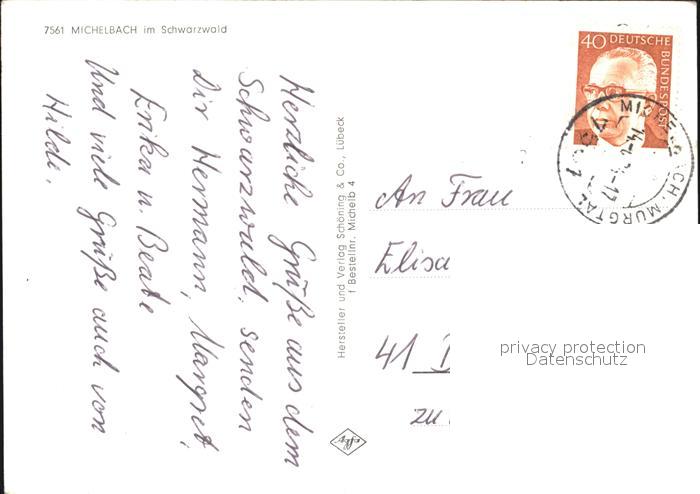 7561 MICHELBACH im Schwarzwald
Herzliche Grüße aus dem
Schwarzwald, senden
Dir Hermann, Margret,
Erika u. Beate
Und viele Grüße auch von
Hilde.
Hersteller und Verlag Schöning & Co., Lübeck
1 Bestellnr. Michelb 4
40 DEUTSCHE
BUNDESPOST
MURGTAL
An Frau
Elisa
41
zu
privacy protection
Datenschutz